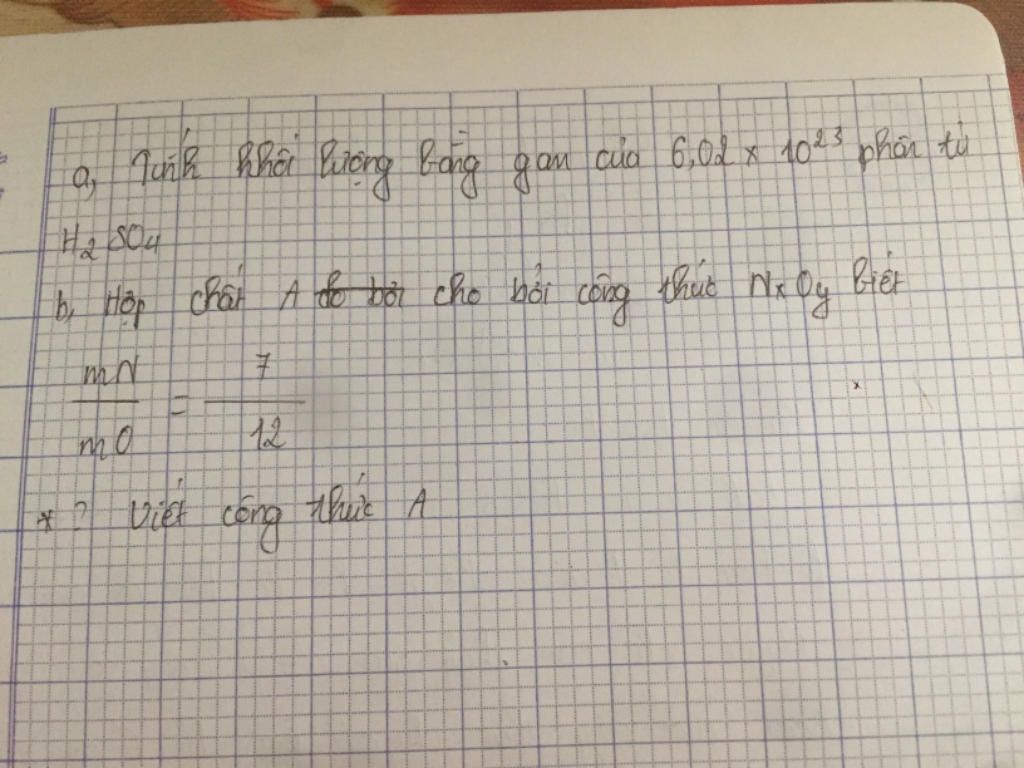 a, Tính khối lượng bằng gam của 6,02 x 10²³ phân tử
H₂SO₄
b, Hợp chất A cho bởi công thức NxOy biết
mN / mO = 7 / 12
*? Viết công thức A